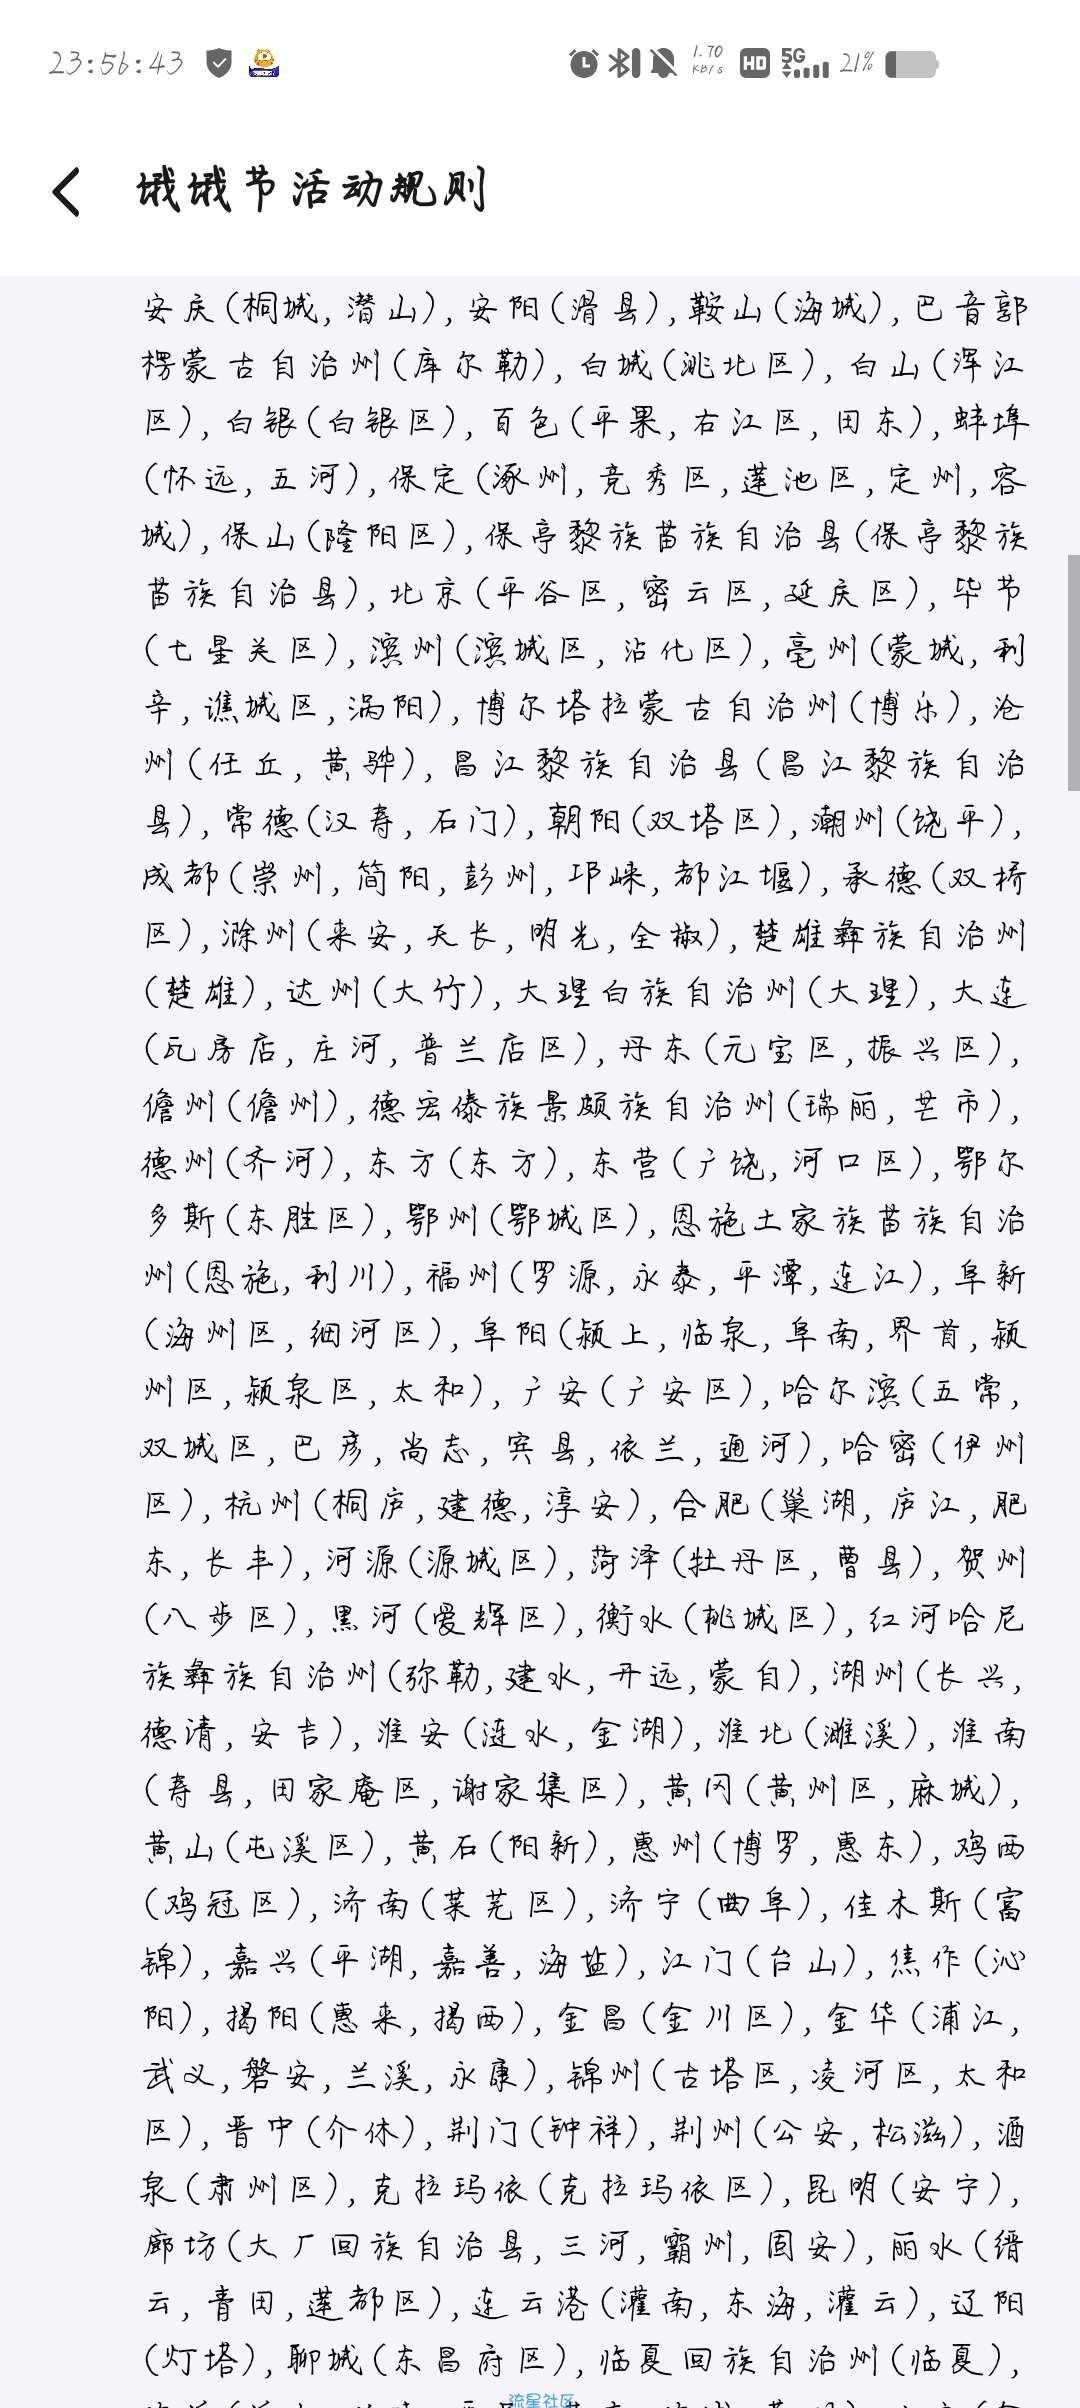 23:56:43
1.70
KB/s
HD
5G
21%
饿饿节活动规则
安庆(桐城,潜山),安阳(滑县),鞍山(海城),巴音郭
楞蒙古自治州(库尔勒),白城(洮北区),白山(浑江
区),白银(白银区),百色(平果,右江区,田东),蚌埠
(怀远,五河),保定(涿州,竞秀区,莲池区,定州,容
城),保山(隆阳区),保亭黎族苗族自治县(保亭黎族
苗族自治县),北京(平谷区,密云区,延庆区),毕节
(七星关区),滨州(滨城区,沾化区),亳州(蒙城,利
辛,谯城区,涡阳),博尔塔拉蒙古自治州(博乐),沧
州(任丘,黄骅),昌江黎族自治县(昌江黎族自治
县),常德(汉寿,石门),朝阳(双塔区),潮州(饶平),
成都(崇州,简阳,彭州,邛崃,都江堰),承德(双桥
区),滁州(来安,天长,明光,全椒),楚雄彝族自治州
(楚雄),达州(大竹),大理白族自治州(大理),大连
(瓦房店,庄河,普兰店区),丹东(元宝区,振兴区),
儋州(儋州),德宏傣族景颇族自治州(瑞丽,芒市),
德州(齐河),东方(东方),东营(广饶,河口区),鄂尔
多斯(东胜区),鄂州(鄂城区),恩施土家族苗族自治
州(恩施,利川),福州(罗源,永泰,平潭,连江),阜新
(海州区,细河区),阜阳(颍上,临泉,阜南,界首,颍
州区,颍泉区,太和),广安(广安区),哈尔滨(五常,
双城区,巴彦,尚志,宾县,依兰,通河),哈密(伊州
区),杭州(桐庐,建德,淳安),合肥(巢湖,庐江,肥
东,长丰),河源(源城区),菏泽(牡丹区,曹县),贺州
(八步区),黑河(爱辉区),衡水(桃城区),红河哈尼
族彝族自治州(弥勒,建水,开远,蒙自),湖州(长兴,
德清,安吉),淮安(涟水,金湖),淮北(濉溪),淮南
(寿县,田家庵区,谢家集区),黄冈(黄州区,麻城),
黄山(屯溪区),黄石(阳新),惠州(博罗,惠东),鸡西
(鸡冠区),济南(莱芜区),济宁(曲阜),佳木斯(富
锦),嘉兴(平湖,嘉善,海盐),江门(台山),焦作(沁
阳),揭阳(惠来,揭西),金昌(金川区),金华(浦江,
武义,磐安,兰溪,永康),锦州(古塔区,凌河区,太和
区),晋中(介休),荆门(钟祥),荆州(公安,松滋),酒
泉(肃州区),克拉玛依(克拉玛依区),昆明(安宁),
廊坊(大厂回族自治县,三河,霸州,固安),丽水(缙
云,青田,莲都区),连云港(灌南,东海,灌云),辽阳
(灯塔),聊城(东昌府区),临夏回族自治州(临夏),
流星社区